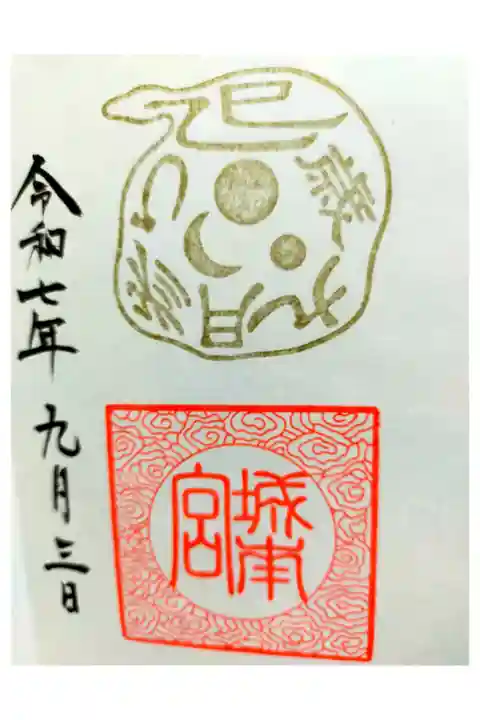 巳歳九月参り
城南宮
令和七年 九月三日